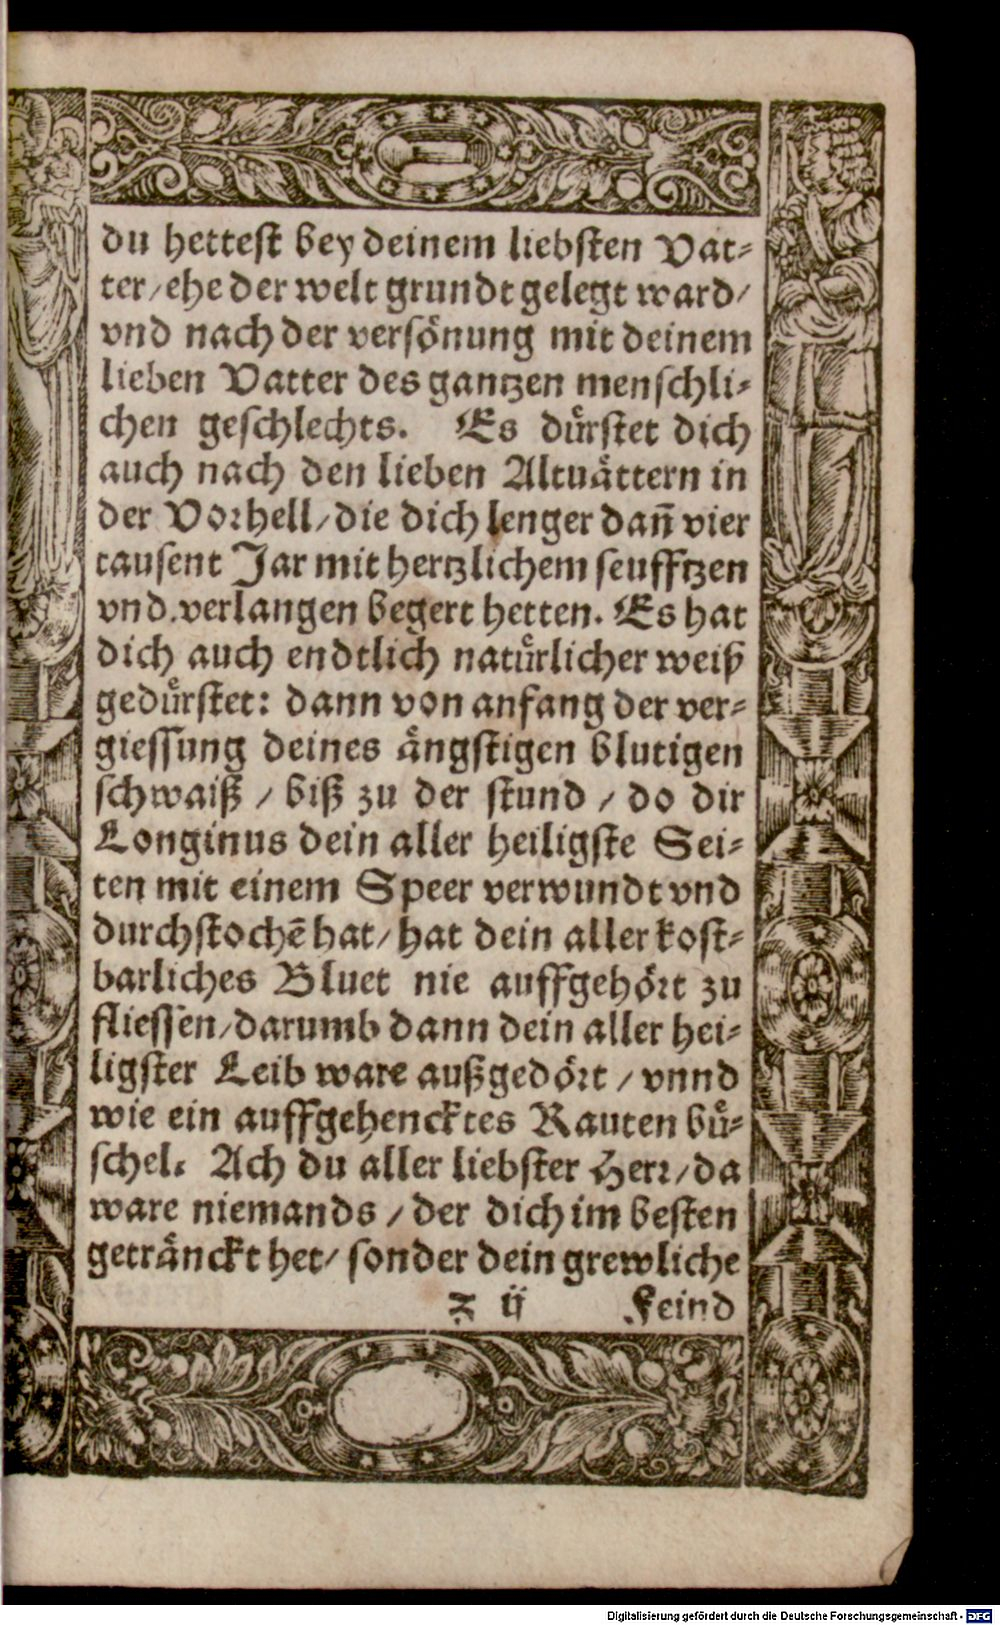 du hettest bey deinem liebsten Vat⸗
ter/ehe der welt grundt gelegt ward/
vnd nach der versönung mit deinem
lieben Vatter des gantzen menschli⸗
chen geschlechts. Es dürstet dich
auch nach den lieben Altuättern in
der Vorhell/die dich lenger dañ vier
tausent Jar mit hertzlichem seufftzen
vnd verlangen begert hetten. Es hat
dich auch endtlich natürlicher weiß
gedürstet: dann von anfang der ver⸗
giessung deines ängstigen blutigen
schwaiß / biß zu der stund / do dir
Longinus dein aller heiligste Sei⸗
ten mit einem Speer verwundt vnd
durchstochē hat/ hat dein aller kost⸗
barliches Bluet nie auffgehört zu
fliessen/darumb dann dein aller hei⸗
ligster Leib ware außgedört / vnnd
wie ein auffgehencktes Rauten bü⸗
schel. Ach du aller liebster Herr/da
ware niemands / der dich im besten
getränckt het/ sonder dein grewliche
z ij Feind
Digitalisierung gefördert durch die Deutsche Forschungsgemeinschaft - DFG